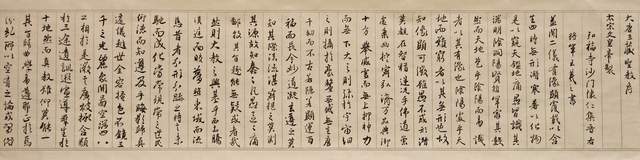 大唐三藏聖教序
太宗文皇帝製
弘福寺沙門懷仁集晉右
將軍王羲之書
蓋聞二儀有像顯覆載以含
生四時無形潛寒暑以化物
是以窺天鑑地庸愚皆識其
端明陰洞陽賢哲罕窮其數
然而天地苞乎陰陽而易識
者以其有像也陰陽處乎天
地而難窮者以其無形也故
知像顯可徵雖愚不惑形潛
莫覩在智猶迷況乎佛道崇
虛乘幽控寂弘濟萬品典御
十方舉威靈而無上抑神力
而無下大之則彌於宇宙細
之則攝於毫釐無滅無生歷
千劫而不古若隱若顯運百
福而長今妙道凝玄遵之莫
知其際法流湛寂挹之莫測
其源故知蠢蠢凡愚區區庸
鄙投其旨趣能無疑惑者哉
然則大教之興基乎西土騰
漢庭而皎夢照東域而流
慈昔者分形分跡之時言未
馳而成化當常現常之世民
仰德而知遵及乎晦影歸真
遷儀越世金容掩色不鏡三
千之光麗象開圖空端四八
之相於是微言廣被拯含類
於三途遺訓遐宣導群生於
十地然而真教難仰莫能一
其旨歸曲學易遵邪正於焉
紛糾所以空有之論或習俗